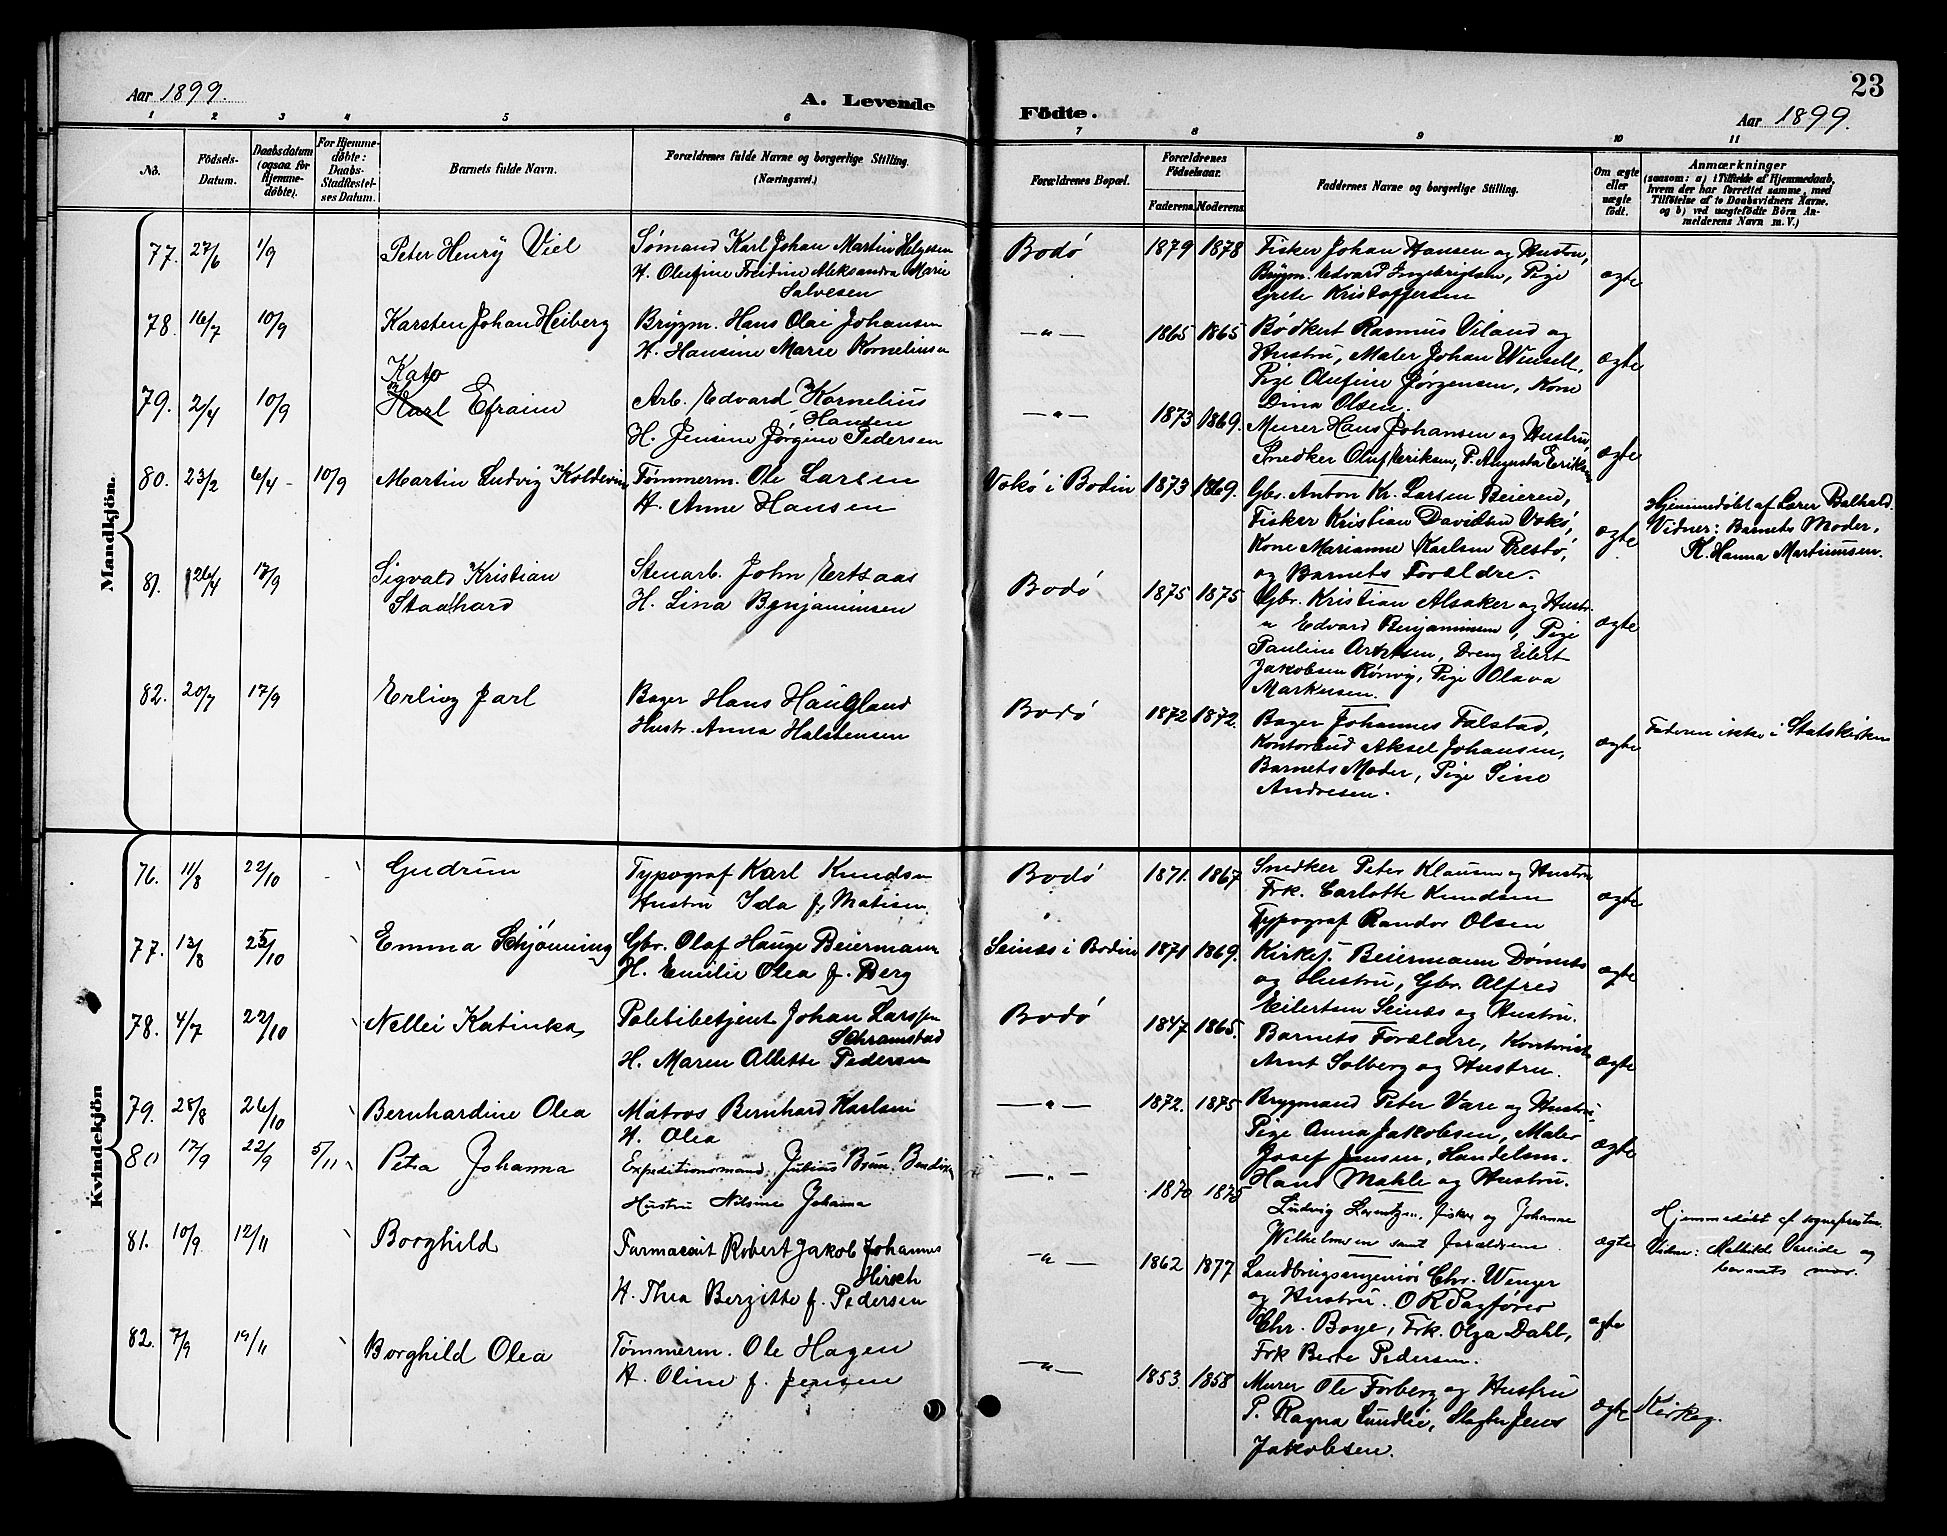 23
Aar 1899.
A. Levende
Födte.
Aar 1899.
1 2 3 4 5 6 7 8 9 10 11
No.
Födsels-Datum.
Daabsdatum (ogsaa for Hjemmedöbte).
For Hjemmedöbte: Daabs-Stadfæstelses Datum.
Barnets fulde Navn.
Forældrenes fulde Navne og borgerlige Stilling. (Næringsvei.)
Forældrenes Bopæl.
Forældrenes Födselsaar.
Faderens. Moderens.
Faddernes Navne og borgerlige Stilling.
Om ægte eller uægte födt.
Anmærkninger (saasom: a) i Tilfælde af Hjemmedaab, hvem der har forrettet samme, med Tilföielse af to Daabsvidners Navne, og b) ved uægtefödte Börn Anmelderens Navn m. V.)
Mandkjön.
77. 27/6 1/9 Peter Henry Viel
Sømand Karl Johan Martin Helgesen
H. Olufine Fredine Aleksandra Marie
Salvesen
Bodø 1879 1878
Fisker Johan Hansen og Hustru,
Brygm. Edvard Ingebrigtsen, Pige
Grete Kristoffersen
ægte
78. 16/7 10/9 Karsten Johan Heiberg
Brygm. Hans Olai Johansen
H. Hansine Marie Kornelius
—"— 1865 1865
Bødker Rasmus Viland og
Hustru, Maler Johan
Pige Olufine Jørgensen, Kone
Dina Olsen.
ægte
79. 2/4 10/9
Kato
Karl Efraim
Arb. Edvard Kornelius
Hansen
H. Jensine Jørgine Pedersen
—"— 1873 1869.
Murer Hans Johansen og Hustru
Snedker Oluf Eriksen, P. Augusta Eriksen
ægte
80. 23/2 6/4 10/9 Martin Ludvig Koldevin
Tømmerm. Ole Larsen
H. Anne Hansen
Vokø i Bodin 1873 1869.
Gbr. Anton Kr. Larsen Beieren,
Fisker Kristian Davidsen Vokø,
Kone Marianne Karlsen Restø,
og Barnets Forældre.
ægte
Hjemmedøbt af Lærer
Vidner: Barnets Moder,
K. Hanna Martinusen.
81. 26/4 17/9 Sigvald Kristian
Staalhard
Stenarb. John Ertsaas
H. Lina Benjaminsen
Bodø 1875 1875
Gbr. Kristian Alsaker og Hustr.
" Edvard Benjaminsen, Pige
Pauline Arntsen, Dreng Eilert
Jakobsen Rønvig, Pige Olava
Markusen.
ægte
82. 20/7 17/9 Erling Jarl
Bager Hans Haugland
Hustr. Anna Halstensen
Bodø 1872 1872.
Bager Johannes Falstad,
Kontorbud Aksel Johansen,
Barnets Moder, Pige Sine
Andresen.
ægte
Faderen ikke i Statskirken
Kvindekjön
76. 11/8 22/10 Gudrun
Typograf Karl Knudsen
Hustru Ida f. Matisen
Bodø 1871. 1867
Snedker Peter Klausen og Hustru
Frk. Carlotte Knudsen
Typograf Randor Olsen
ægte
77. 13/8 25/10 Emma Schjønning
Gbr. Olaf Hauge Beiermann
H. Emilie Olea f. Berg
Seines i Bodin 1871 1869.
Kirkes. Beiermann Dønnes
og Hustru, Gbr. Alfred
Eilertsen Seines og Hustru.
ægte
78. 4/7 22/10 Nellei Katinka
Politibetjent Johan Larssen
Schramstad
H. Maren Allette Pedersen
Bodø 1847 1865.
Barnets Forældre, Kontorist
Arnt Solberg og Hustru.
ægte
79. 28/8 26/10 Bernhardine Olea
Matros Bernhard Karlsen
H. Olea
—"— 1872. 1875
Brygmand Peter Vare og Hustru
Pige Anna Jakobsen, Maler
Josef Jensen, Handelsm.
Hans Mahle og Hustru.
ægte
80 17/9 22/9 5/11 Petra Johanna
Expeditionsmand Julius Brun Bendixen
Hustru Nilsine Johanna
—"— 1870 1875
Ludvig Lorentzen, fisker og Johanne
Wilhelmsen samt forældrene.
ægte
Hjemmedøbt af sognepresten.
Vidner: Mathilde og
barnets mor.
81. 10/9 12/11 Borghild
Farmaceut Robert Jakob Johannes
Hirsch
H. Thea Bergitte f. Pedersen
—"— 1862 1877
Landbrugsingeniør Chr. Wenger
og Hustru. O R Sagfører
Chr. Boye, Frk. Olga Dahl,
Frk Berte Pedersen.
ægte
82. 7/9 19/11 Borghild Olea
Tømmerm. Ole Hagen
H. Oline f. Jensen
—"— 1853. 1858
Murer Ole Forberg og Hustru
P. Ragna Lundli, Slagter Jens
Jakobsen.
ægte